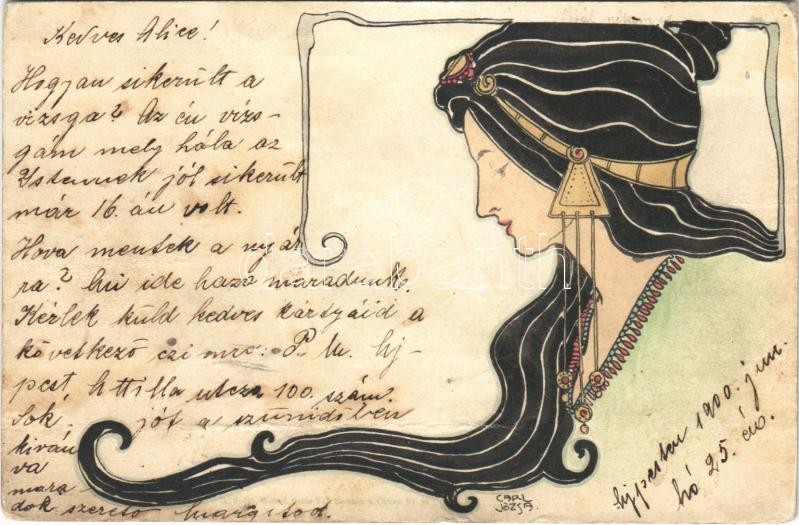 Kedves Alice!
Hogyan sikerült a
vizsga? Az én vizs-
gám mely hála az
Istennek jól sikerült
már 16. án volt.
Hova mentek a nyár
ra? Mi ide haza maradunk.
Kérlek küld kedves kártyáid a
következő czimre: P. M. Uj-
pest Attilla utcza 100. szám.
Sok jót a szünidőben
kiván
va
mara
dok szerető Margitod.
Ujpesten 1900. jun.
hó 25. én.
CARL
JÓZSA
darabanth